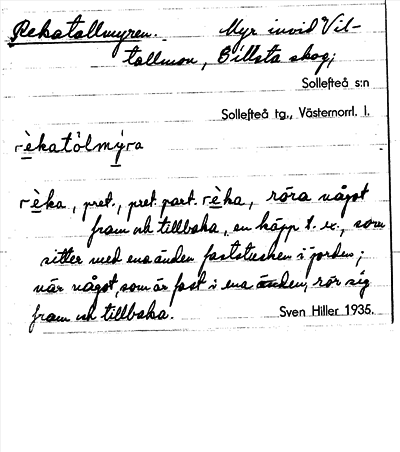 Rekatallmyren. Myr invid Vil-
tallmon, Billsta skog;
Sollefteå s:n
Sollefteå tg., Västernorrl. l.
rèkatòlmýra
rèka, pret., pret. part. rèka, röra något
fram och tillbaka, en käpp t. ex., som
sitter med ena änden faststucken i jorden;
när något, som är fast i ena änden, rör sig
fram och tillbaka.
Sven Hiller 1935.